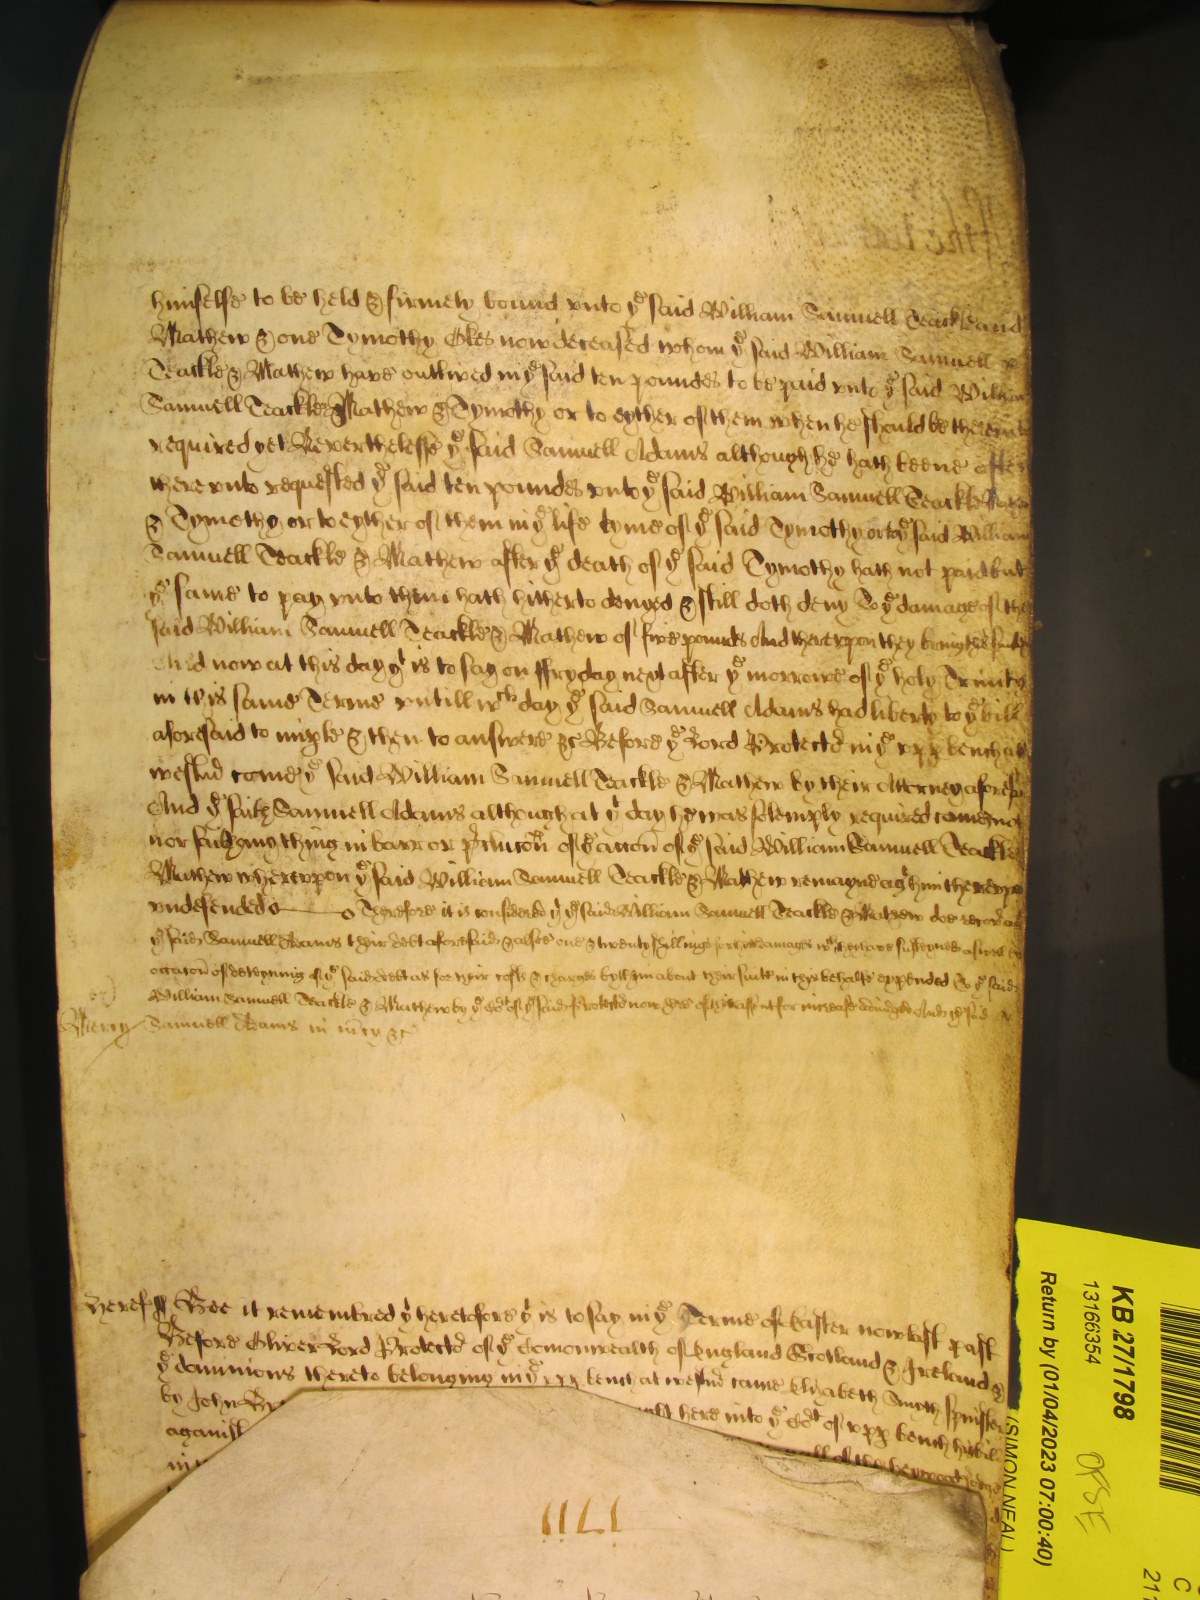 himselfe to be held & firmely bound unto ye said William Samuell Teackle and
Mathew & one Tymothy Okes now deceased whom ye said William Samuell
Teackle & Mathew have outlived in ye said ten poundes to be paid unto ye said William
Samuell Teackle & Mathew & Tymothy or to eyther of them when he should be thereunto
required yet Neverthelesse ye said Samuell Adams although he hath beene often
thereunto requested ye said ten poundes unto ye said William Samuell Teackle Mathew
& Tymothy or to eyther of them in ye life tyme of ye said Tymothy or to ye said William
Samuell Teackle & Mathew after ye death of ye said Tymothy hath not paid but
ye same to pay unto them hath hitherto denyed & still doth deny To ye damage of the
said William Samuell Teackle & Mathew of five pounds And thereupon they bring the suite
And now at this day yt is to say on ffryday next after ye morrowe of ye holy Trinity
in this same Terme untill wch day ye said Samuell Adams had liberty to ye bill
aforesaid to imple & then to answere &c Before ye Lord Protectr in ye upp bench at
westmr come ye said William Samuell Teackle & Mathew by their Attorney aforesd
And ye said Samuell Adams although at yt day he was solemply required came not
nor said any thing in barr or preclucon of ye accon of ye said William Samuell Teackle
Mathew whereupon ye said William Samuell Teackle & Mathew remayne agt him thereupon
undefended Therefore it is considered yt ye said William Samuell Teackle & Mathew doe recover agt
ye said Samuell Adams their debt aforesaid & alsoe one & twenty shillings for their damages wch they have susteyned aswell by
occacon of deteyning of ye said debt as for their costs & charges by them about their suite in this behalfe expended To ye said
William Samuell Teackle & Mathew by ye Cort of ye said Protector now here of their assent for increase adiudged And ye said
Mercy Samuell Adams in mcy &c
Heref ss Bee it remembred yt heretofore yt is to say in ye Terme of Easter now last past
Before Oliver Lord Protectr of ye Comonwealth of England Scotland & Ireland &
ye dominions thereto belonging in ye upp bench at westmr came Elizabeth Smyth spinster
by John here into ye Cort of upp bench his bill
against
1711
KB 27/1798
131663354
Return by (01/04/2023 07:00:40)
(SIMON NEAL)